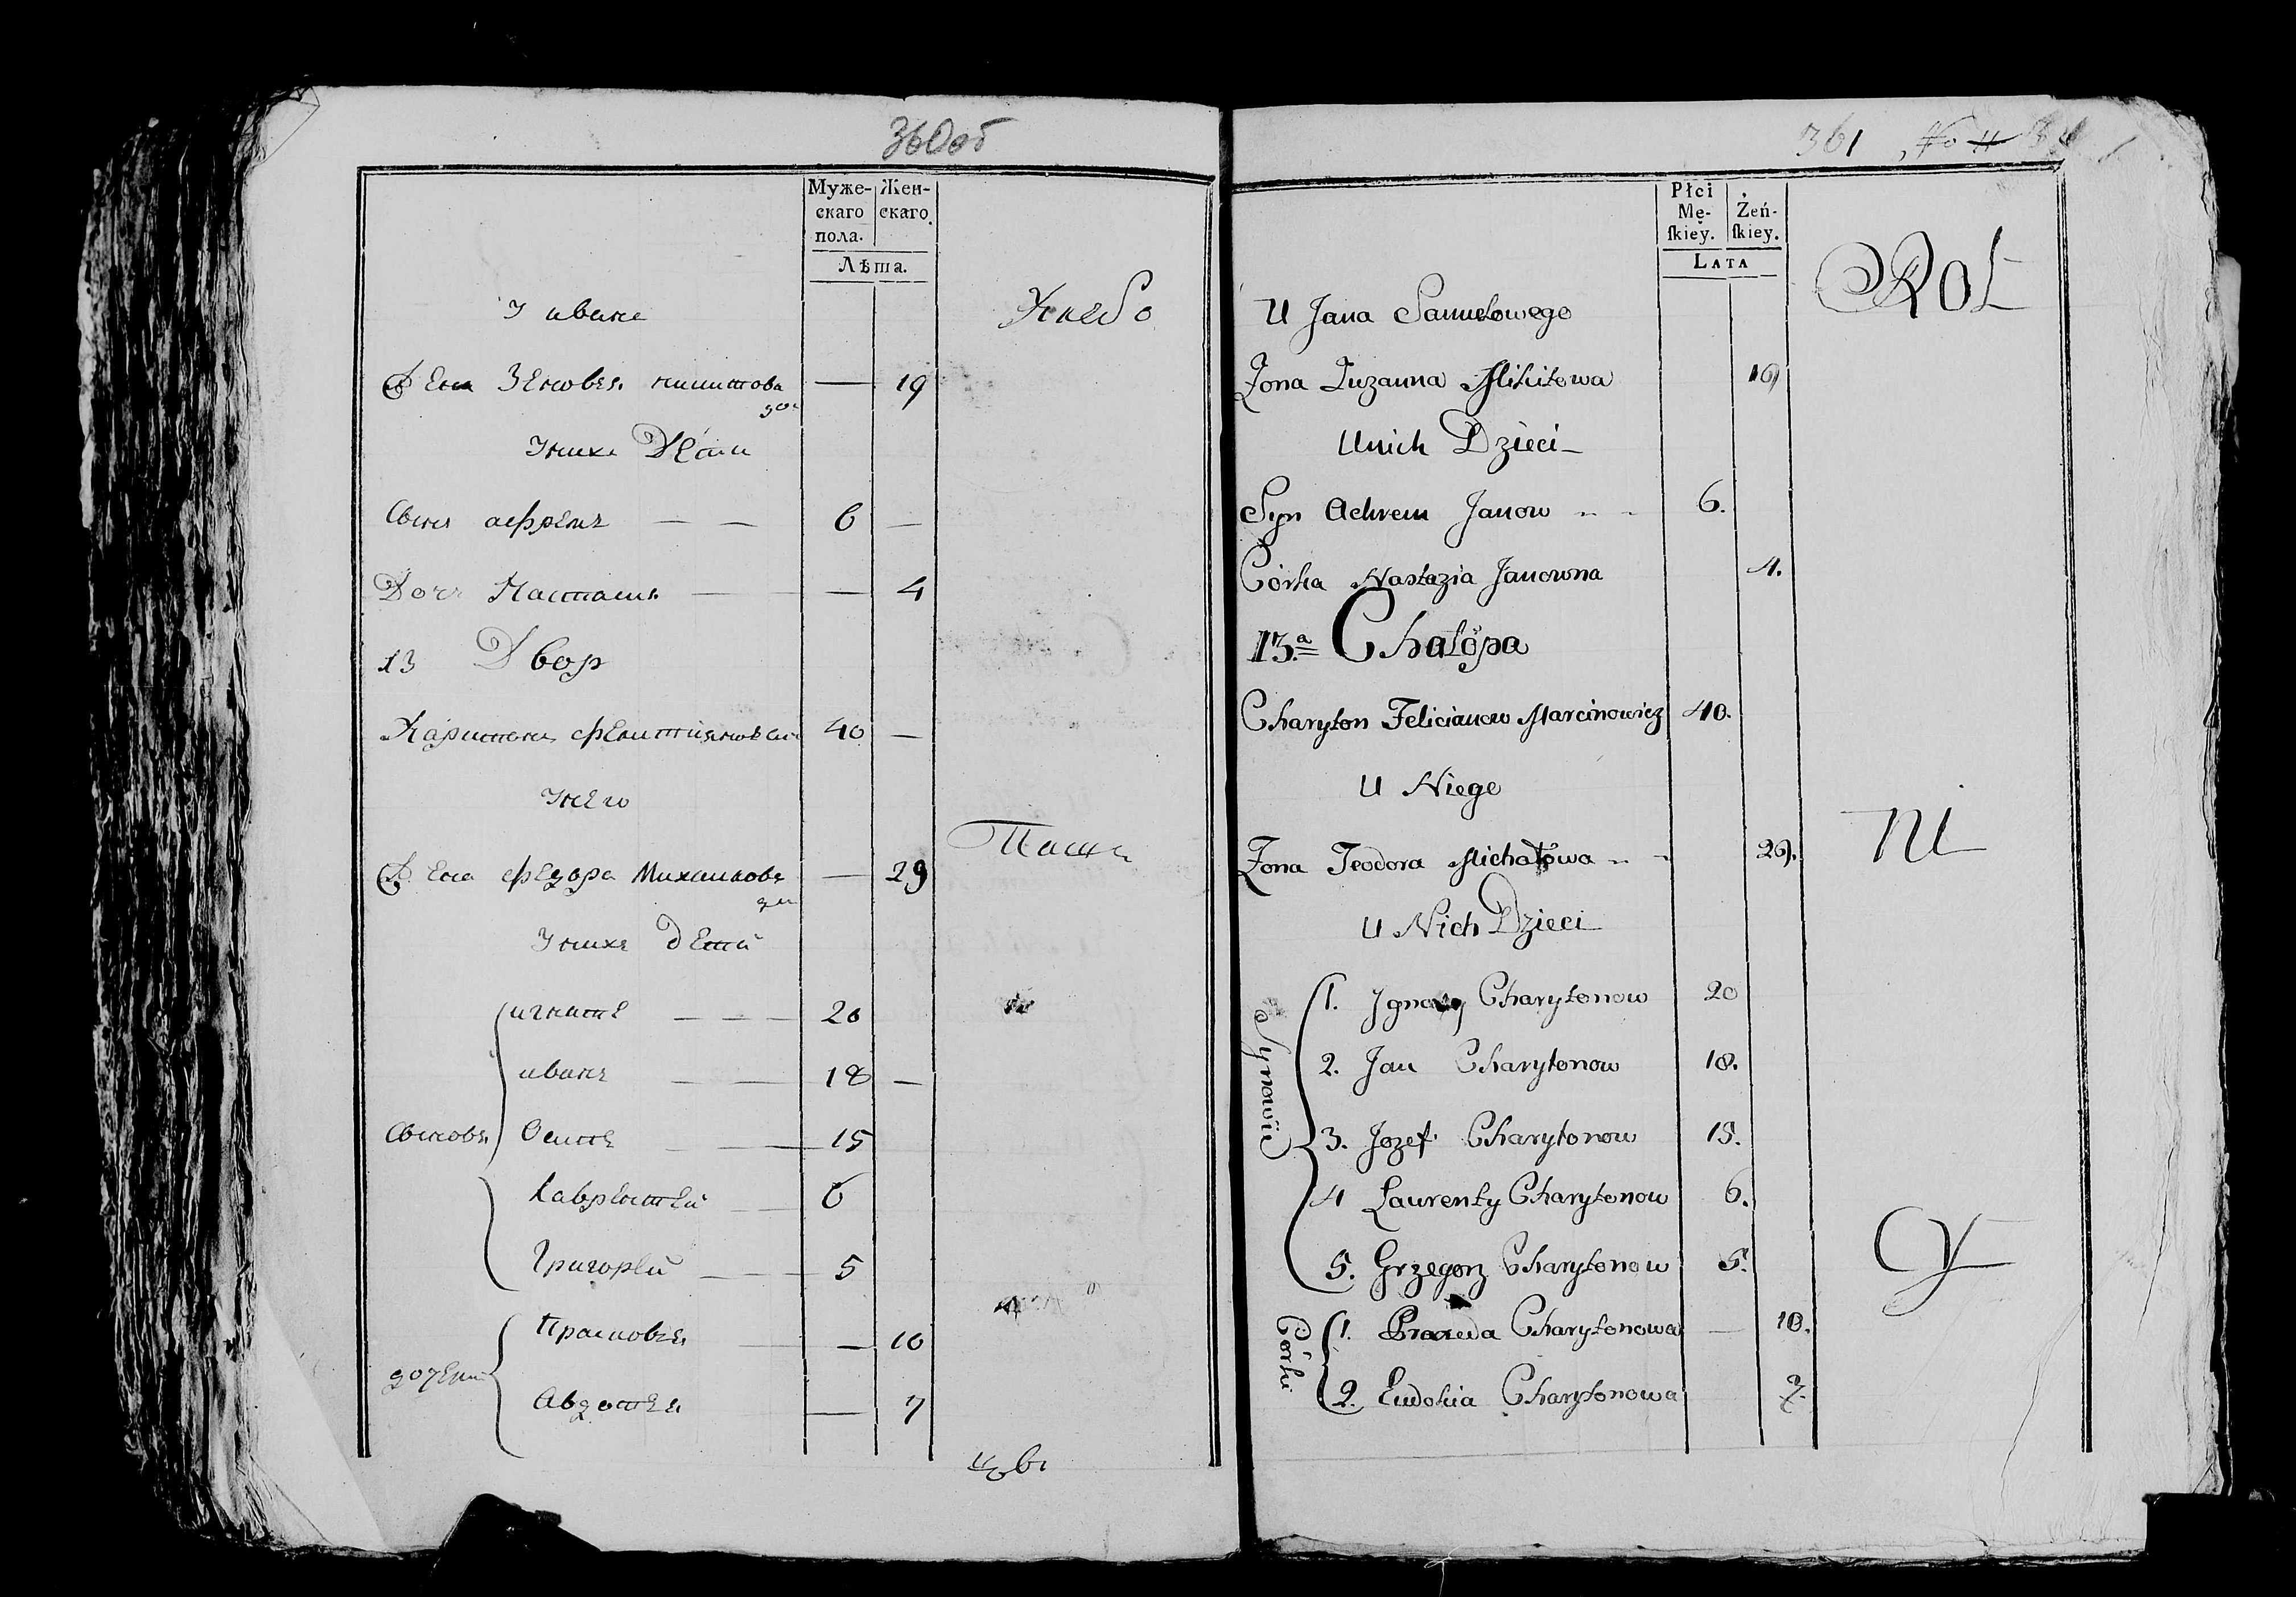 360об
Муже- Жен-
скаго скаго.
пола.
Лѣта.
У ивана
Хлебо
Жена Зеновея никитова 19
доч
У них Дети
Сын афрем — — 6 —
Доч Настася — — 4
13 Двор
Харитон 40 —
У него
Жена федора Михаилова — 29
Паш
У них дети
Сыновя
игнате — — — 20
иван — — 18 —
Осипе — — 15
Лаврентей — — 6
Григорей — 5
дочери
Прасковея — — 10
Авдотея — 7
цовы
361
Płci
Mę- Żeń-
ſkiey. ſkiey.
LATA
U Jana Samułowego
Roł
Żona Zuzanna Mikitowa 19
U nich Dzieci
Syn Achrem Janow 6.
Córka Nastazia Janowna 4.
13.a Chałupa
Charyton Felicianow Marcinowicz 40.
U Niego
Żona Teodora Michałowa 29.
ni
U Nich Dzieci
Synowie
1. Jgnacy Charytonow 20
2. Jan Charytonow 18.
3. Jozef Charytonow 15.
4 Laurenty Charytonow 6.
5. Grzegorz Charytonow 5.
Cy
Córki
1. Praxeda Charytonowa — 10.
2. Eudokia Charytonowa 7.